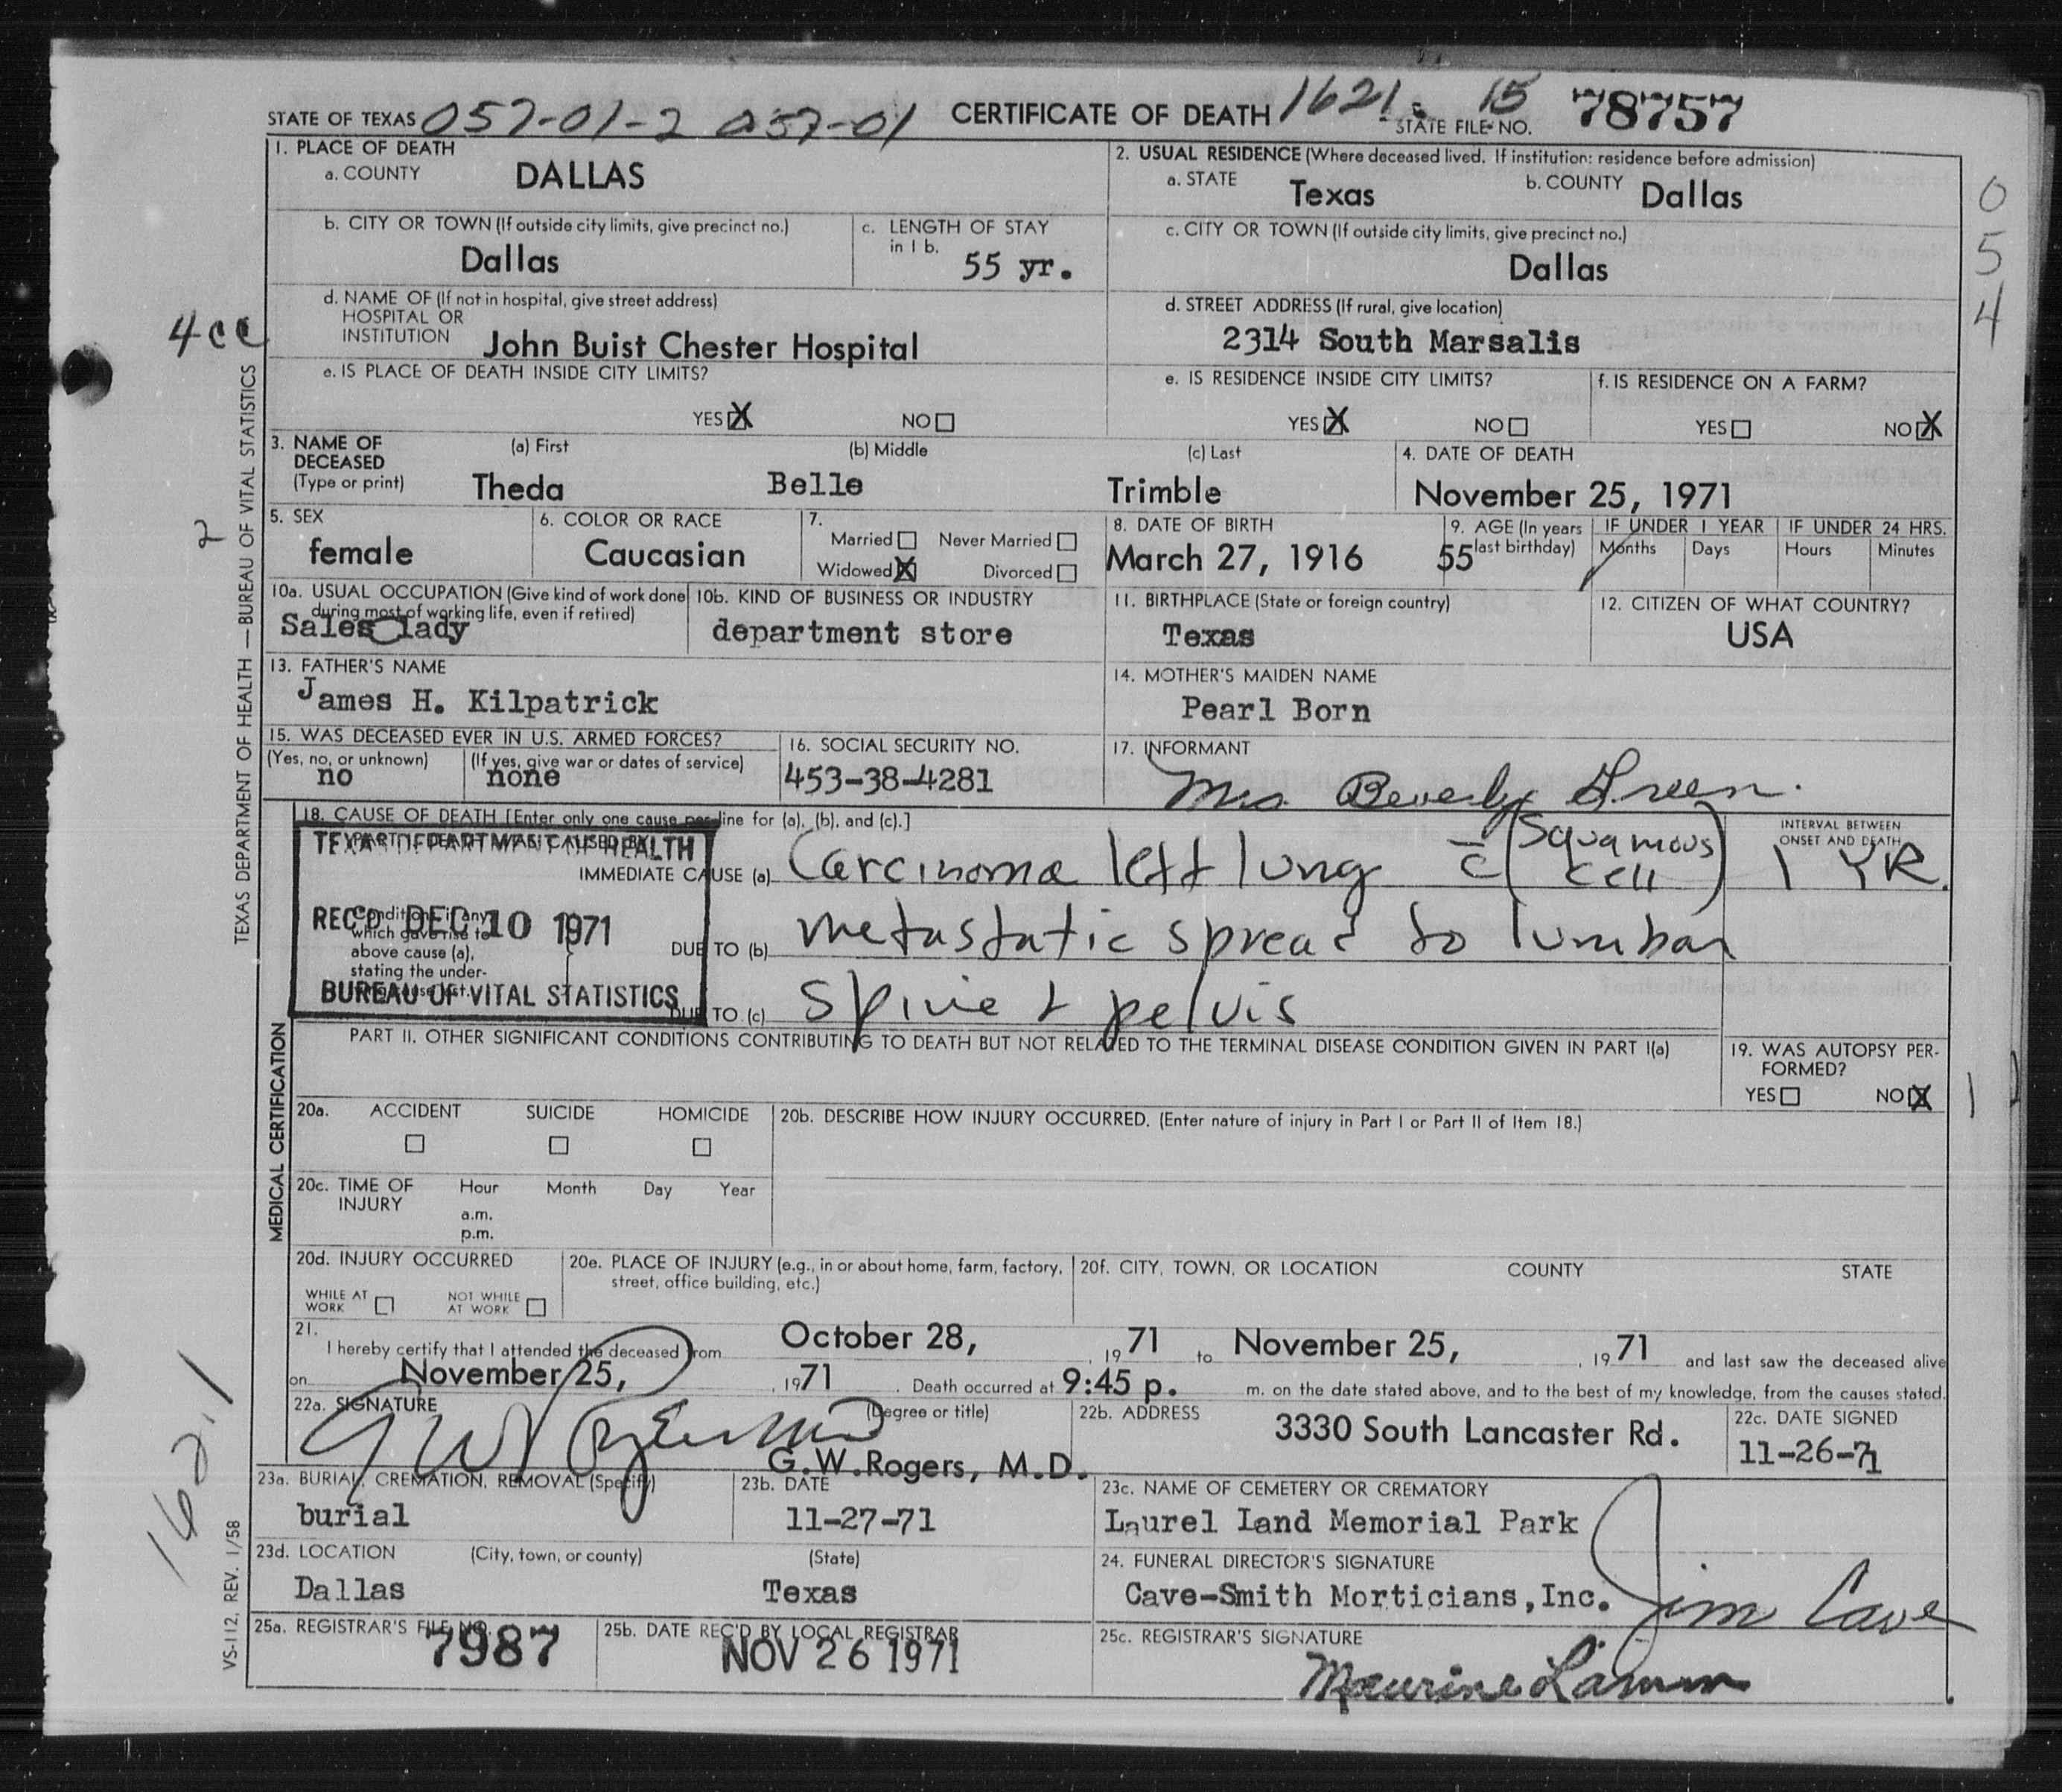 STATE OF TEXAS 057-01-2 057-01 CERTIFICATE OF DEATH 1621. 15 STATE FILE NO. 78757
1. PLACE OF DEATH
a. COUNTY DALLAS
2. USUAL RESIDENCE (Where deceased lived. If institution: residence before admission)
a. STATE Texas b. COUNTY Dallas
b. CITY OR TOWN (If outside city limits, give precinct no.) Dallas
c. LENGTH OF STAY in 1 b. 55 yr.
c. CITY OR TOWN (If outside city limits, give precinct no.) Dallas
d. NAME OF (If not in hospital, give street address)
HOSPITAL OR
INSTITUTION John Buist Chester Hospital
d. STREET ADDRESS (If rural, give location)
2314 South Marsalis
e. IS PLACE OF DEATH INSIDE CITY LIMITS?
YES X NO
e. IS RESIDENCE INSIDE CITY LIMITS?
YES X NO
f. IS RESIDENCE ON A FARM?
YES NO X
0
5
4
4cc
2
3. NAME OF DECEASED (Type or print)
(a) First (b) Middle (c) Last
Theda Belle Trimble
4. DATE OF DEATH
November 25, 1971
5. SEX
female
6. COLOR OR RACE
Caucasian
7.
Married Never Married
Widowed X Divorced
8. DATE OF BIRTH
March 27, 1916
9. AGE (In years last birthday)
55
IF UNDER 1 YEAR
Months Days
IF UNDER 24 HRS.
Hours Minutes
10a. USUAL OCCUPATION (Give kind of work done during most of working life, even if retired)
Sales lady
10b. KIND OF BUSINESS OR INDUSTRY
department store
11. BIRTHPLACE (State or foreign country)
Texas
12. CITIZEN OF WHAT COUNTRY?
USA
13. FATHER'S NAME
James H. Kilpatrick
14. MOTHER'S MAIDEN NAME
Pearl Born
15. WAS DECEASED EVER IN U.S. ARMED FORCES?
(Yes, no, or unknown) (If yes, give war or dates of service)
no none
16. SOCIAL SECURITY NO.
453-38-4281
17. INFORMANT
Mrs. Beverly Green.
TEXAS DEPARTMENT OF HEALTH — BUREAU OF VITAL STATISTICS
MEDICAL CERTIFICATION
18. CAUSE OF DEATH [Enter only one cause per line for (a), (b), and (c).]
PART I. DEATH WAS CAUSED BY:
IMMEDIATE CAUSE (a) Carcinoma left lung c̄ (Squamous cell)
INTERVAL BETWEEN ONSET AND DEATH
1 YR.
TEXAS DEPARTMENT OF HEALTH
REC'D DEC 10 1971
BUREAU OF VITAL STATISTICS
Conditions, if any,
which gave rise to
above cause (a),
stating the under-
lying cause last.
DUE TO (b) metastatic spread to lumbar
DUE TO (c) spine + pelvis
PART II. OTHER SIGNIFICANT CONDITIONS CONTRIBUTING TO DEATH BUT NOT RELATED TO THE TERMINAL DISEASE CONDITION GIVEN IN PART I(a)
19. WAS AUTOPSY PER-
FORMED?
YES NO X
1
20a. ACCIDENT SUICIDE HOMICIDE
20b. DESCRIBE HOW INJURY OCCURRED. (Enter nature of injury in Part I or Part II of Item 18.)
20c. TIME OF INJURY Hour Month Day Year
a.m.
p.m.
20d. INJURY OCCURRED
WHILE AT WORK NOT WHILE AT WORK
20e. PLACE OF INJURY (e.g., in or about home, farm, factory, street, office building, etc.)
20f. CITY, TOWN, OR LOCATION COUNTY STATE
21.
I hereby certify that I attended the deceased from October 28, , 19 71 to November 25, , 19 71 and last saw the deceased alive
on November 25, , 19 71 . Death occurred at 9:45 p. m. on the date stated above, and to the best of my knowledge, from the causes stated.
22a. SIGNATURE (Degree or title)
G W Rogers MD
G.W.Rogers, M.D.
22b. ADDRESS
3330 South Lancaster Rd.
22c. DATE SIGNED
11-26-71
162.1
23a. BURIAL, CREMATION, REMOVAL (Specify)
burial
23b. DATE
11-27-71
23c. NAME OF CEMETERY OR CREMATORY
Laurel Land Memorial Park
23d. LOCATION (City, town, or county) (State)
Dallas Texas
24. FUNERAL DIRECTOR'S SIGNATURE
Cave-Smith Morticians,Inc. Jim Cave
25a. REGISTRAR'S FILE NO.
7987
25b. DATE REC'D BY LOCAL REGISTRAR
NOV 26 1971
25c. REGISTRAR'S SIGNATURE
Maurine
VS-112, REV. 1/58